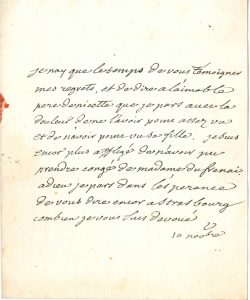 je nay que le temps de vous temoigner
mes regrets, et de dire a laimable
pere de nicette que je pars avec la
douleur de ne lavoir point assez vu
et de navoir point vu sa fille, je suis
encor plus affligé de navoir pu
prendre congé de madame du
adieu je pars dans lesperance
de vous dire encor a strasbourg
combien je vous suis devoué
10